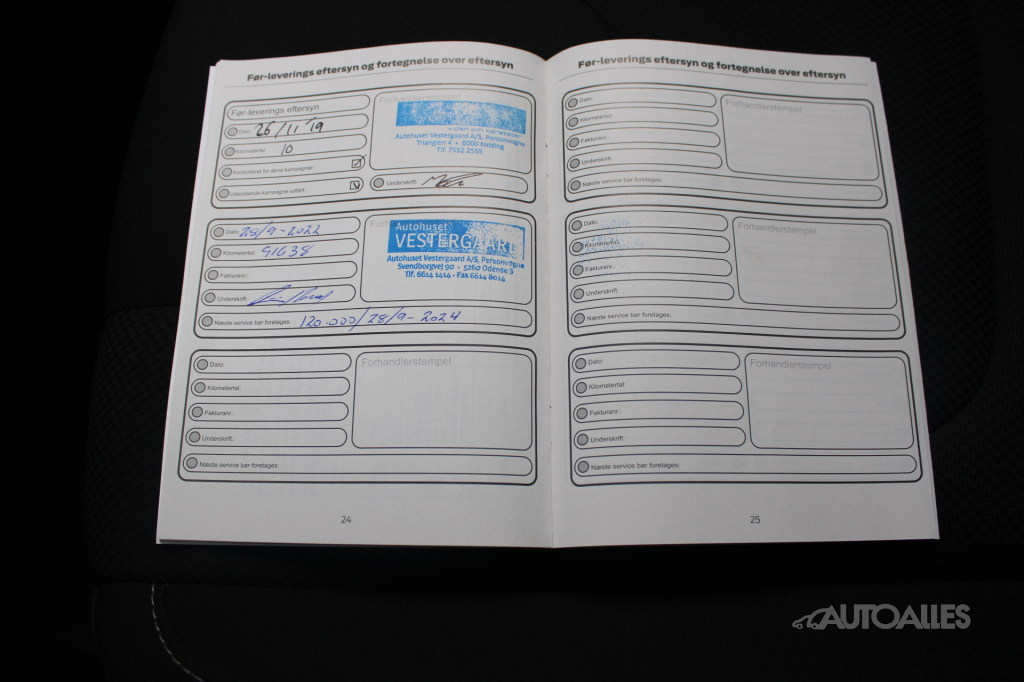 Før-leverings eftersyn og fortegnelse over eftersyn
Før-leverings eftersyn
Dato: 26/11-19
Kilometertal: 10
Kontrolleret for åbne kampagner:
Udestående kampagne udført:
Forhandlerstempel
viden om køreglæde
Autohuset Vestergaard A/S, Personvogne
Trianglen 4 • 6000 Kolding
Tlf. 7552 2555
Underskrift:
Dato: 28/9-2022
Kilometertal: 91638
Fakturanr.:
Underskrift:
Næste service bør foretages: 120.000/28/9-2024
Autohuset
VESTERGAARD
Autohuset Vestergaard A/S, Personvogne
Svendborgvej 90 • 5260 Odense S
Tlf. 6614 1414 • Fax 6614 8014
Dato:
Kilometertal:
Fakturanr.:
Underskrift:
Næste service bør foretages:
Forhandlerstempel
24
Før-leverings eftersyn og fortegnelse over eftersyn
Dato:
Kilometertal:
Fakturanr.:
Underskrift:
Næste service bør foretages:
Forhandlerstempel
Dato:
Kilometertal:
Fakturanr.:
Underskrift:
Næste service bør foretages:
Forhandlerstempel
Dato:
Kilometertal:
Fakturanr.:
Underskrift:
Næste service bør foretages:
Forhandlerstempel
25
AUTOALLES